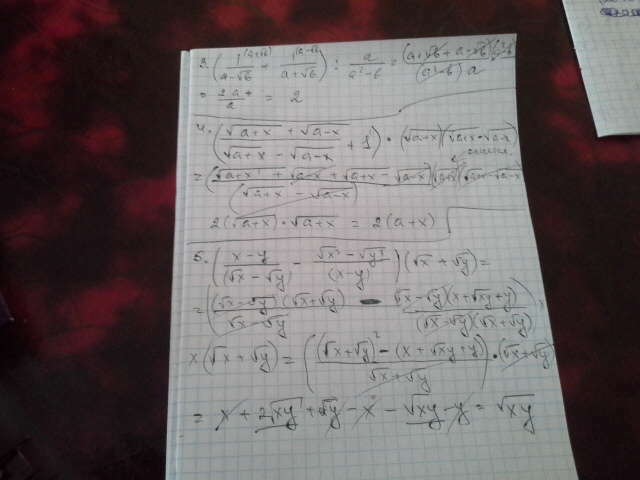 3. (1^(a+√b)/(a-√b) + 1^(a-√b)/(a+√b)) : a/(a²-b) = (a+√b + a-√b)(a²-b)/((a²-b) a)
= 2a/a = 2
4. ((√(a+x) + √(a-x))/(√(a+x) - √(a-x)) + 1) · (√(a+x))(√(a+x) - √(a-x))
= (√(a+x) + √(a-x) + √(a+x) - √(a-x))(√(a+x))(√(a+x) - √(a-x))/(√(a+x) - √(a-x))
2(√(a+x)) · √(a+x) = 2(a+x)
5. ((x-y)/(√x - √y) - (√x³ - √y³)/(x-y))(√x + √y) =
= ((√x - √y)(√x + √y)/(√x - √y) - (√x - √y)(x + √xy + y)/((√x - √y)(√x + √y))) ·
x (√x + √y) = (((√x + √y)² - (x + √xy + y))/(√x + √y)) · (√x + √y)
= x + 2√xy + y - x - √xy - y = √xy